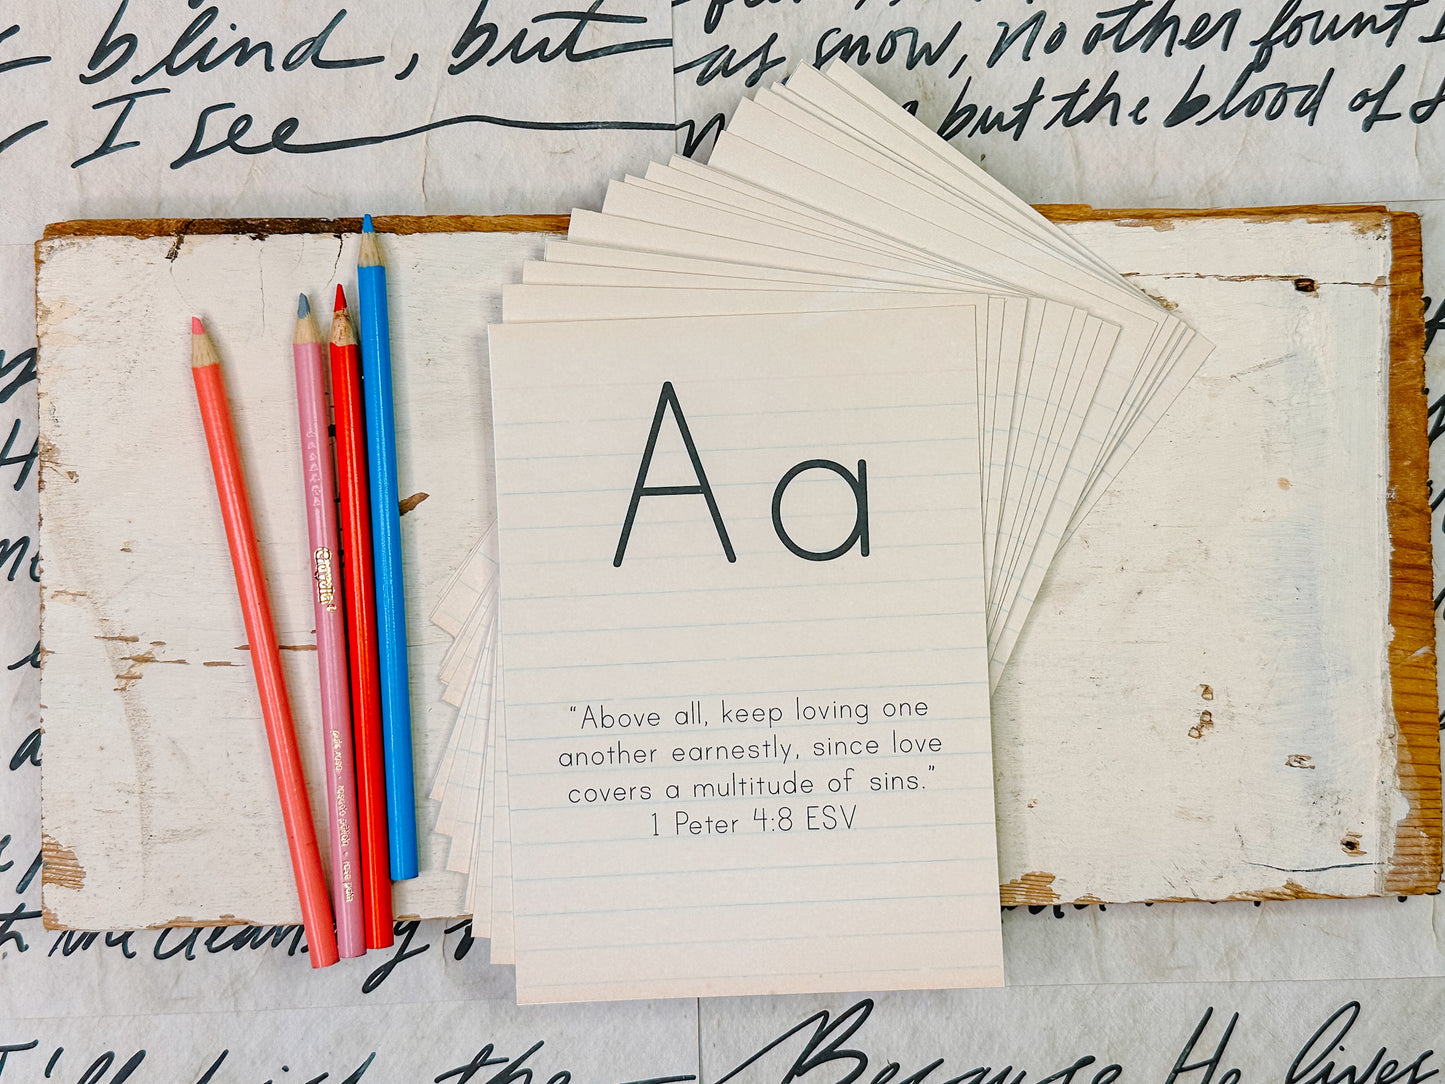 blind, but
I see
as snow, no other fount I
but the blood of
Aa
“Above all, keep loving one
another earnestly, since love
covers a multitude of sins.”
1 Peter 4:8 ESV
Crayola
me cleansing
I'll cherish the
Because He lives